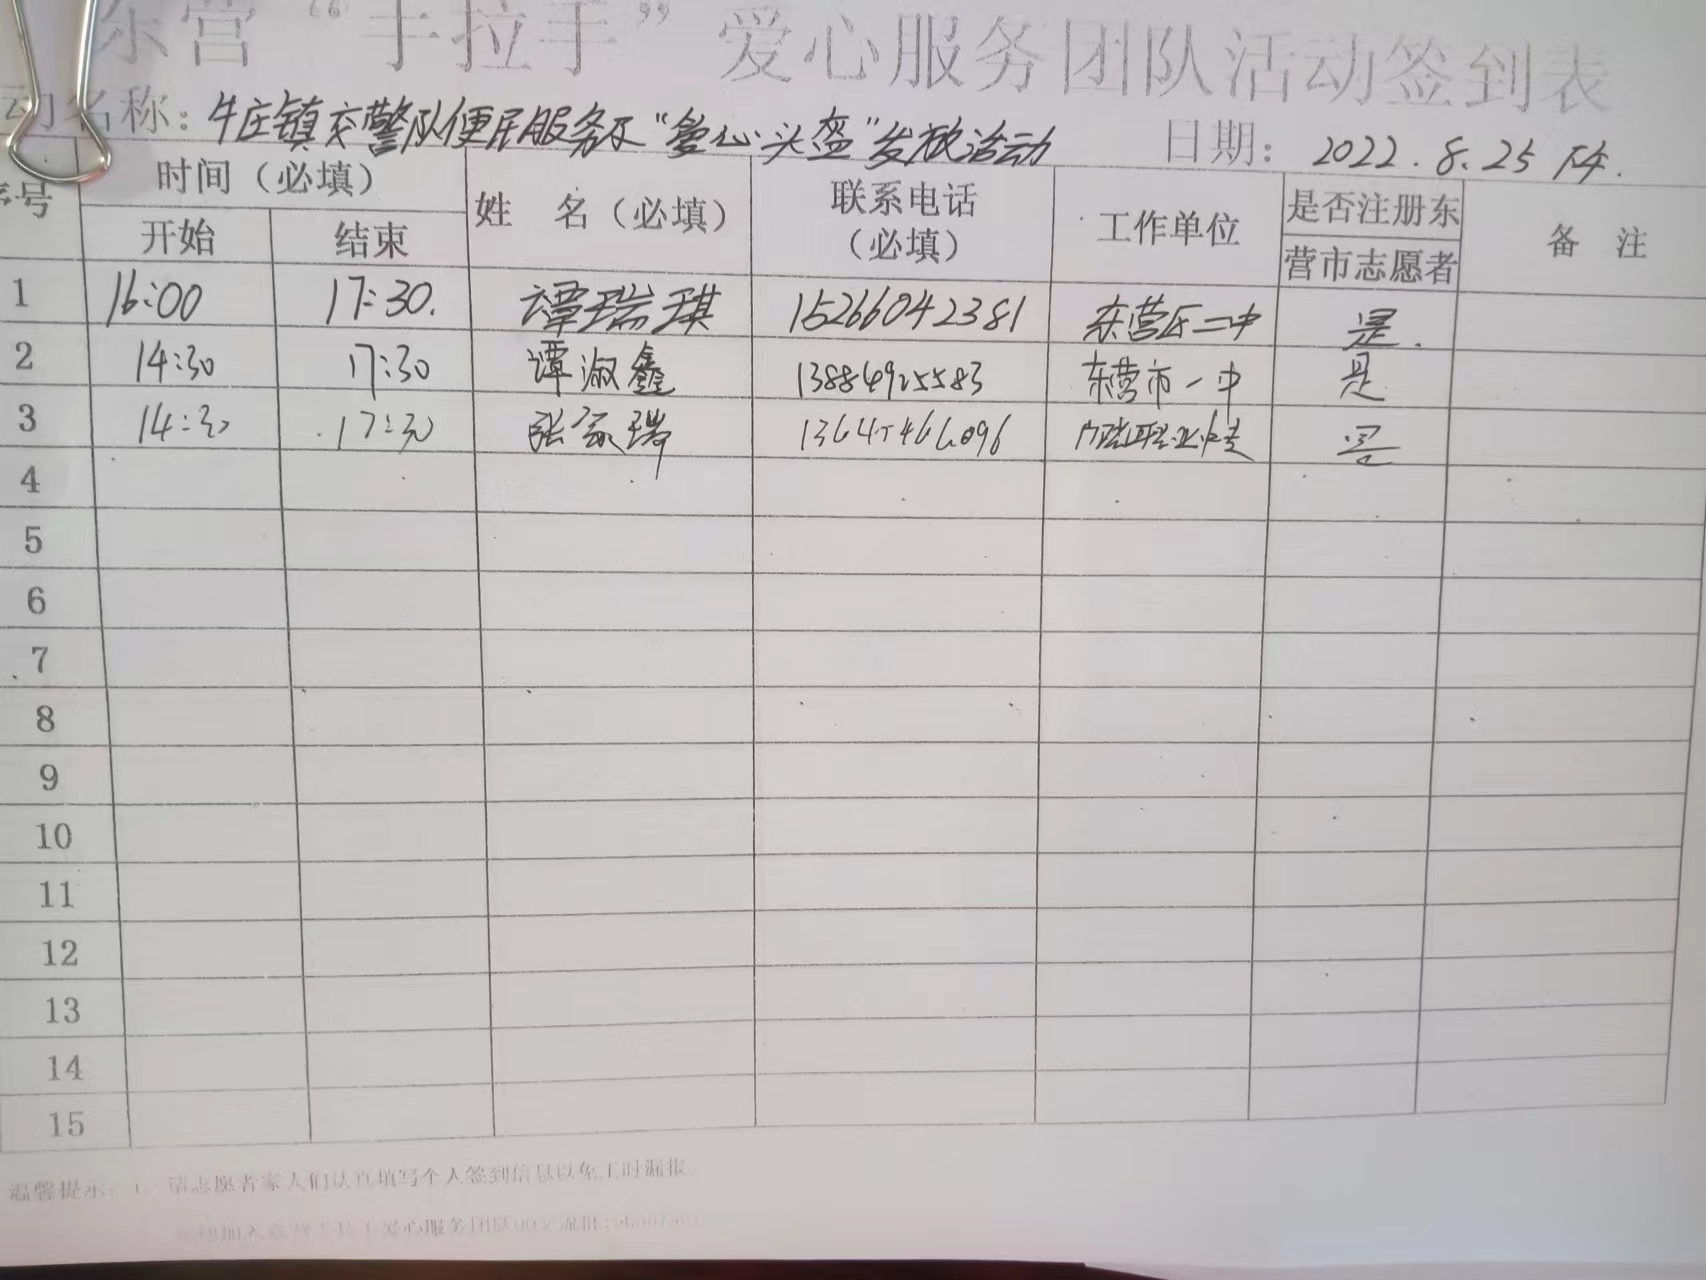 东营“手拉手”爱心服务团队活动签到表
动名称：牛庄镇交警队便民服务及“爱心头盔”发放活动 日期：2022.8.25 下午.
序号 时间（必填） 姓 名（必填） 联系电话（必填） 工作单位 是否注册东营市志愿者 备 注
开始 结束
1 16:00 17:30. 谭瑞琪 15266042381 东营区二中 是.
2 14:30 17:30 谭淑鑫 13884925583 东营市一中 是
3 14:30 17:30 张家瑞 13645466096 是
4
5
6
7
8
9
10
11
12
13
14
15
温馨提示：1、请志愿者家人们认真填写个人签到信息以免工时漏报